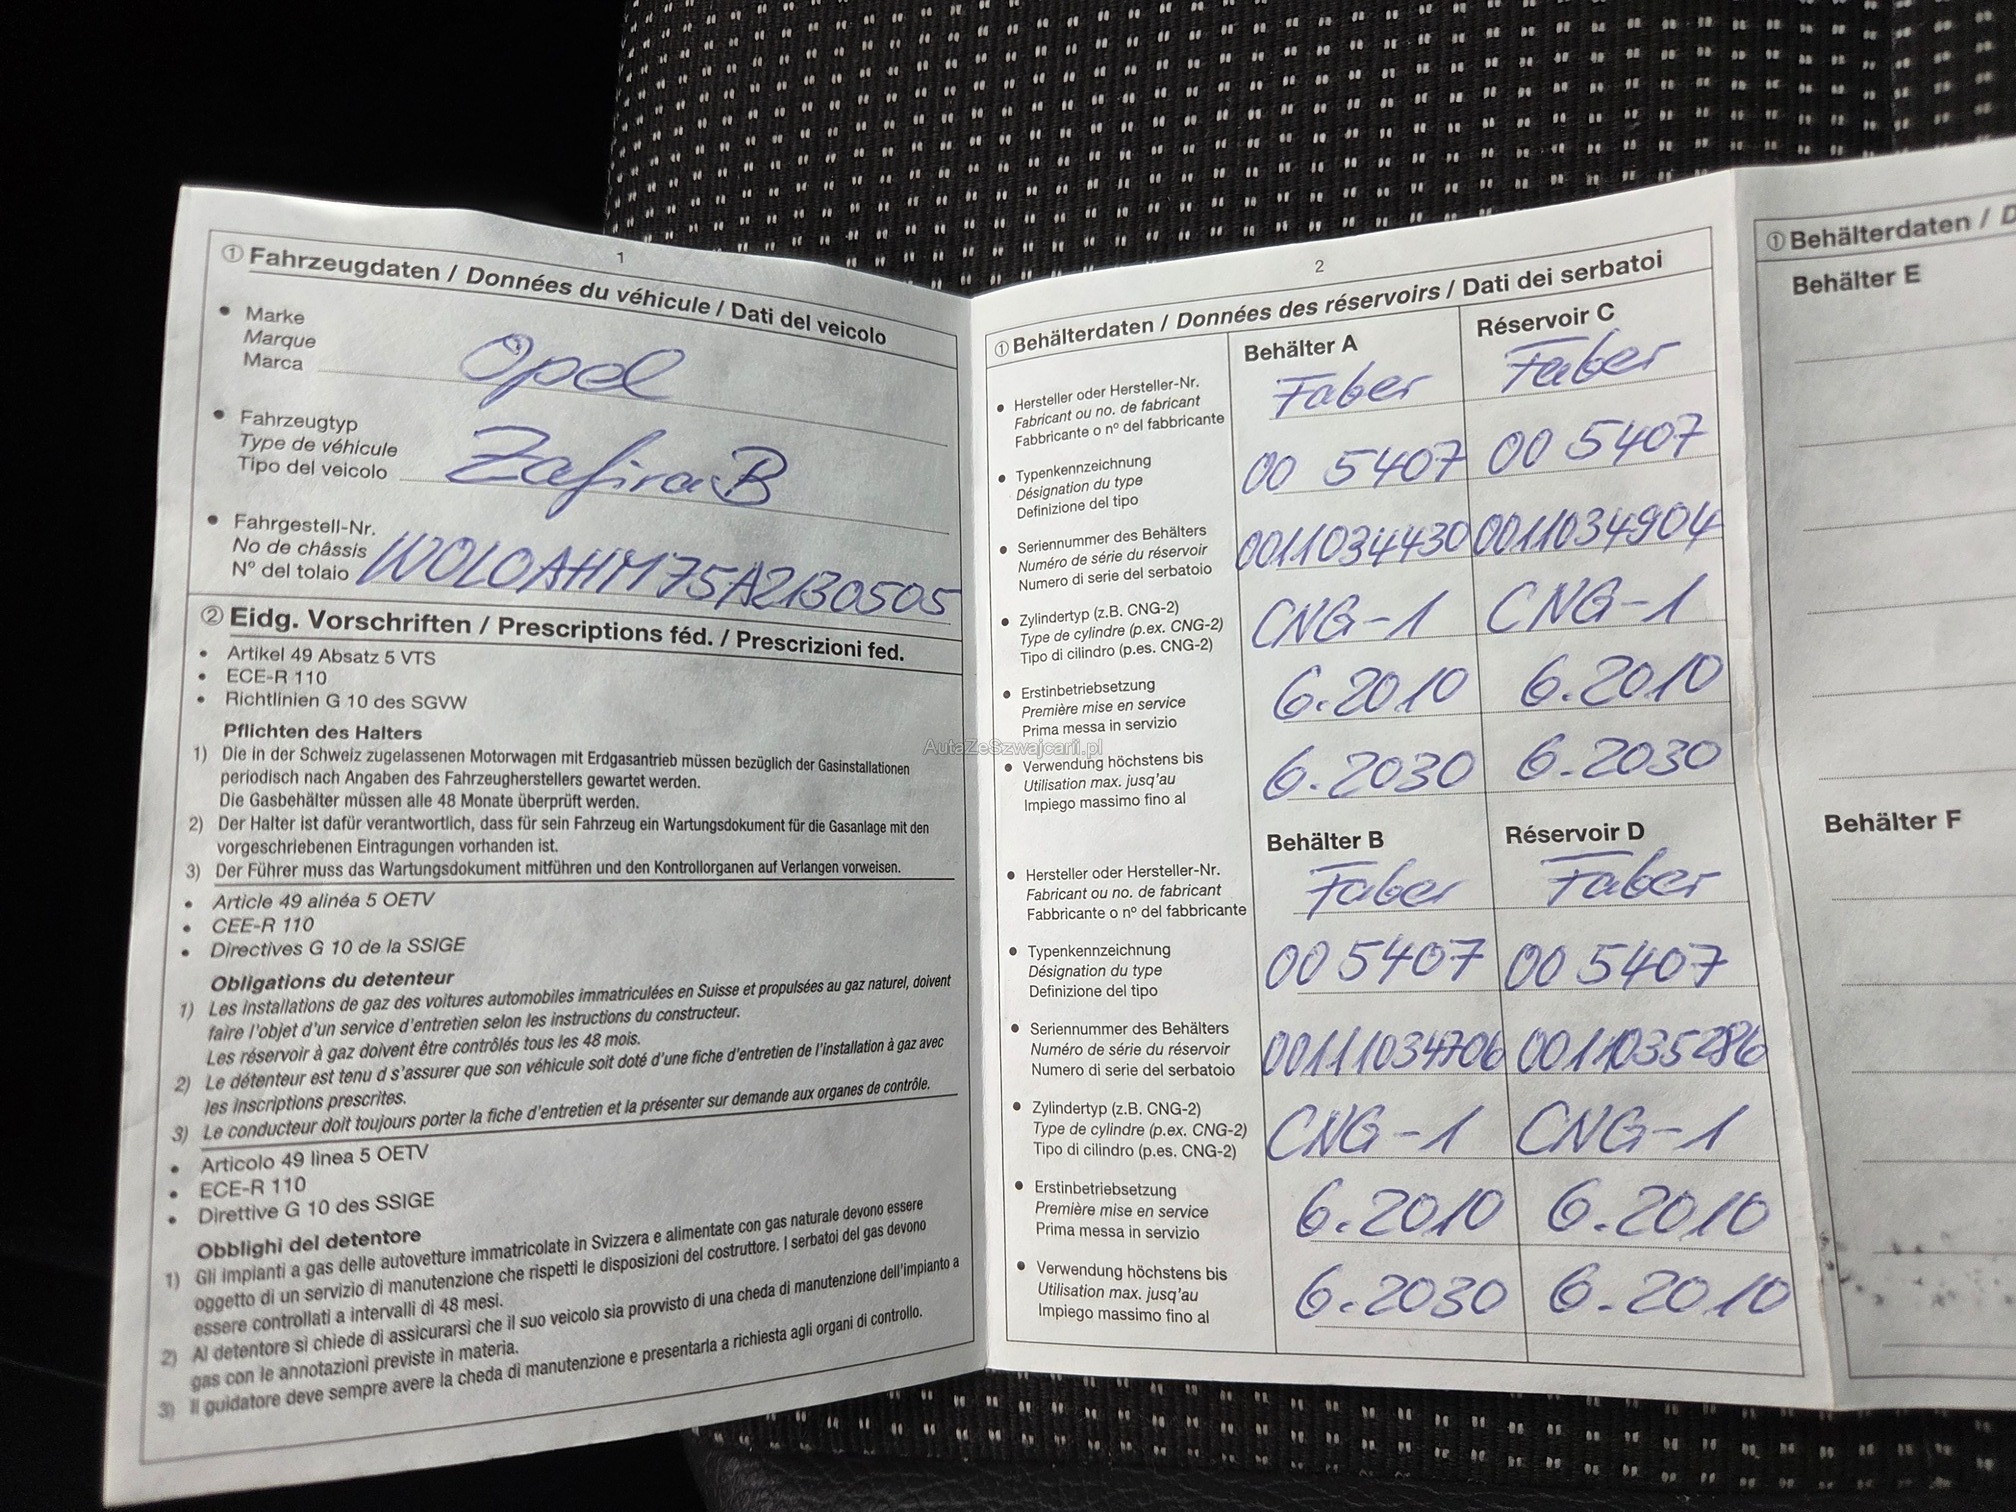 1
① Fahrzeugdaten / Données du véhicule / Dati del veicolo
• Marke
Marque
Marca Opel
• Fahrzeugtyp
Type de véhicule
Tipo del veicolo Zafira B
• Fahrgestell-Nr.
No de châssis
N° del tolaio W0L0AHM75A2130505
② Eidg. Vorschriften / Prescriptions féd. / Prescrizioni fed.
• Artikel 49 Absatz 5 VTS
• ECE-R 110
• Richtlinien G 10 des SGVW
Pflichten des Halters
1) Die in der Schweiz zugelassenen Motorwagen mit Erdgasantrieb müssen bezüglich der Gasinstallationen
periodisch nach Angaben des Fahrzeugherstellers gewartet werden.
Die Gasbehälter müssen alle 48 Monate überprüft werden.
2) Der Halter ist dafür verantwortlich, dass für sein Fahrzeug ein Wartungsdokument für die Gasanlage mit den
vorgeschriebenen Eintragungen vorhanden ist.
3) Der Führer muss das Wartungsdokument mitführen und den Kontrollorganen auf Verlangen vorweisen.
• Article 49 alinéa 5 OETV
• CEE-R 110
• Directives G 10 de la SSIGE
Obligations du detenteur
1) Les installations de gaz des voitures automobiles immatriculées en Suisse et propulsées au gaz naturel, doivent
faire l'objet d'un service d'entretien selon les instructions du constructeur.
Les réservoir à gaz doivent être contrôlés tous les 48 mois.
2) Le détenteur est tenu d s'assurer que son véhicule soit doté d'une fiche d'entretien de l'installation à gaz avec
les inscriptions prescrites.
3) Le conducteur doit toujours porter la fiche d'entretien et la présenter sur demande aux organes de contrôle.
• Articolo 49 linea 5 OETV
• ECE-R 110
• Direttive G 10 des SSIGE
Obblighi del detentore
1) Gli impianti a gas delle autovetture immatricolate in Svizzera e alimentate con gas naturale devono essere
oggetto di un servizio di manutenzione che rispetti le disposizioni del costruttore. I serbatoi del gas devono
essere controllati a intervalli di 48 mesi.
2) Al detentore si chiede di assicurarsi che il suo veicolo sia provvisto di una cheda di manutenzione dell'impianto a
gas con le annotazioni previste in materia.
3) Il guidatore deve sempre avere la cheda di manutenzione e presentarla a richiesta agli organi di controllo.
2
① Behälterdaten / Données des réservoirs / Dati dei serbatoi
Behälter A Réservoir C
• Hersteller oder Hersteller-Nr.
Fabricant ou no. de fabricant
Fabbricante o n° del fabbricante Faber Faber
• Typenkennzeichnung
Désignation du type
Definizione del tipo 00 5407 00 5407
• Seriennummer des Behälters
Numéro de série du réservoir
Numero di serie del serbatoio 0011034430 0011034904
• Zylindertyp (z.B. CNG-2)
Type de cylindre (p.ex. CNG-2)
Tipo di cilindro (p.es. CNG-2) CNG-1 CNG-1
• Erstinbetriebsetzung
Première mise en service
Prima messa in servizio 6.2010 6.2010
• Verwendung höchstens bis
Utilisation max. jusq'au
Impiego massimo fino al 6.2030 6.2030
Behälter B Réservoir D
• Hersteller oder Hersteller-Nr.
Fabricant ou no. de fabricant
Fabbricante o n° del fabbricante Faber Faber
• Typenkennzeichnung
Désignation du type
Definizione del tipo 00 5407 00 5407
• Seriennummer des Behälters
Numéro de série du réservoir
Numero di serie del serbatoio 00111034706 0011035286
• Zylindertyp (z.B. CNG-2)
Type de cylindre (p.ex. CNG-2)
Tipo di cilindro (p.es. CNG-2) CNG-1 CNG-1
• Erstinbetriebsetzung
Première mise en service
Prima messa in servizio 6.2010 6.2010
• Verwendung höchstens bis
Utilisation max. jusq'au
Impiego massimo fino al 6.2030 6.2010
① Behälterdaten / D
Behälter E
Behälter F
AutaZeSzwajcarii.pl